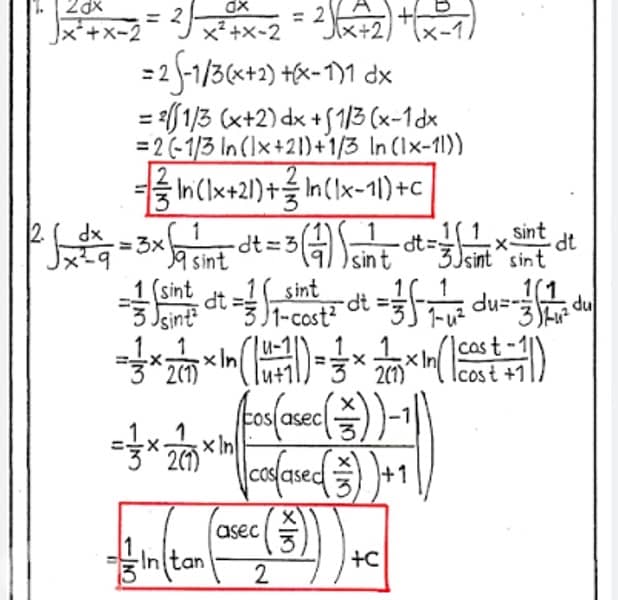 1. ∫ 2dx / x²+x-2 = 2∫ dx / x²+x-2 = 2∫(A / x+2) + (B / x-1)
= 2∫-1/3(x+2) +(x-1)1 dx
= 2(∫1/3 (x+2) dx + ∫1/3 (x-1dx
= 2 (-1/3 ln(|x+2|)+1/3 ln(|x-1|))
= 2/3 ln(|x+2|)+ 2/3 ln(|x-1|)+C
2. ∫ dx / x²-9 = 3× ∫ 1 / 9 sint dt = 3(1/9) ∫ 1 / sint dt = 1/3 ∫ 1 / sint × sint / sint dt
= 1/3 ∫ sint / sint² dt = 1/3 ∫ sint / 1-cost² dt = 1/3 ∫- 1 / 1-u² du = -1/3 ∫ 1 / 1-u² du
= 1/3 × 1/2(1) × ln(|u-1 / u+1|) = 1/3 × 1/2(1) × ln(|cost-1 / cost+1|)
= 1/3 × 1/2(1) × ln(|cos(asec(x/3))-1 / cos(asec(x/3))+1|)
= 1/3 ln(tan(asec(x/3) / 2)) +C